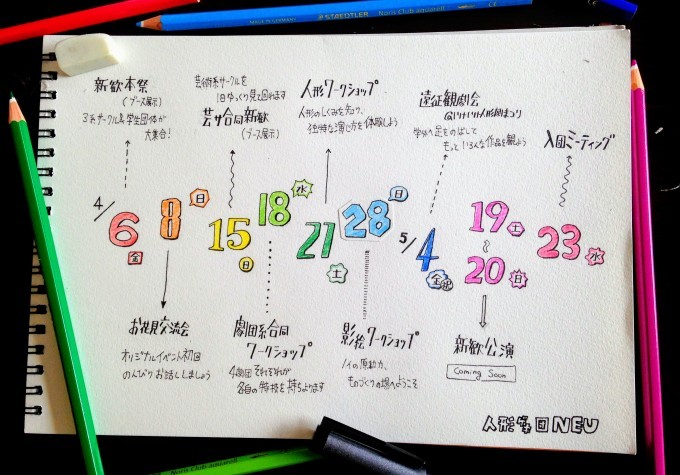 STAEDTLER Noris Club aquarell
Noris Club aquarell
新歓本祭
(ブース展示)
3系サークル&学生団体が
大集合!
芸術系サークルを
1日ゆっくり見て回れます
芸サ合同新歓
(ブース展示)
人形ワークショップ
人形のしくみを知り、
独特な演じ方を体験しよう
遠征観劇会
学外へ足をのばして
もっといろんな作品を観よう
入団ミーティング
4/
6
金
8
日
15
日
18
水
21
土
28
日
5/
4
金祝
19
土
20
日
23
水
お花見交流会
オリジナルイベント初回
のんびりお話ししましょう
劇団系合同
ワークショップ
4劇団それぞれが
各自の特技を持ちよります
影絵ワークショップ
ノイの原動力、
ものづくりの場へようこそ
新歓公演
Coming Soon
人形劇団NEU
Noris Club aquarell